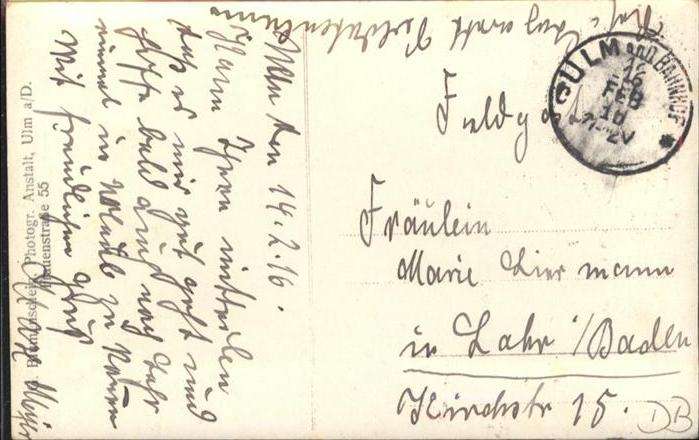 Ulm den 14.2.16.
Kann Ihnen mitteilen
daß es mir gut geht und
hoffe bald auch noch
einmal in Urlaub zu kommen
Mit freundlichem Gruß
Photogr. Anstalt, Ulm a/D.
Frauenstraße 55
ULM a/D BAHNHOF
16
FEB
16
Feldpost
Fräulein
Marie Liermann
in Lahr i/Baden
Kirchstr 15.
DB